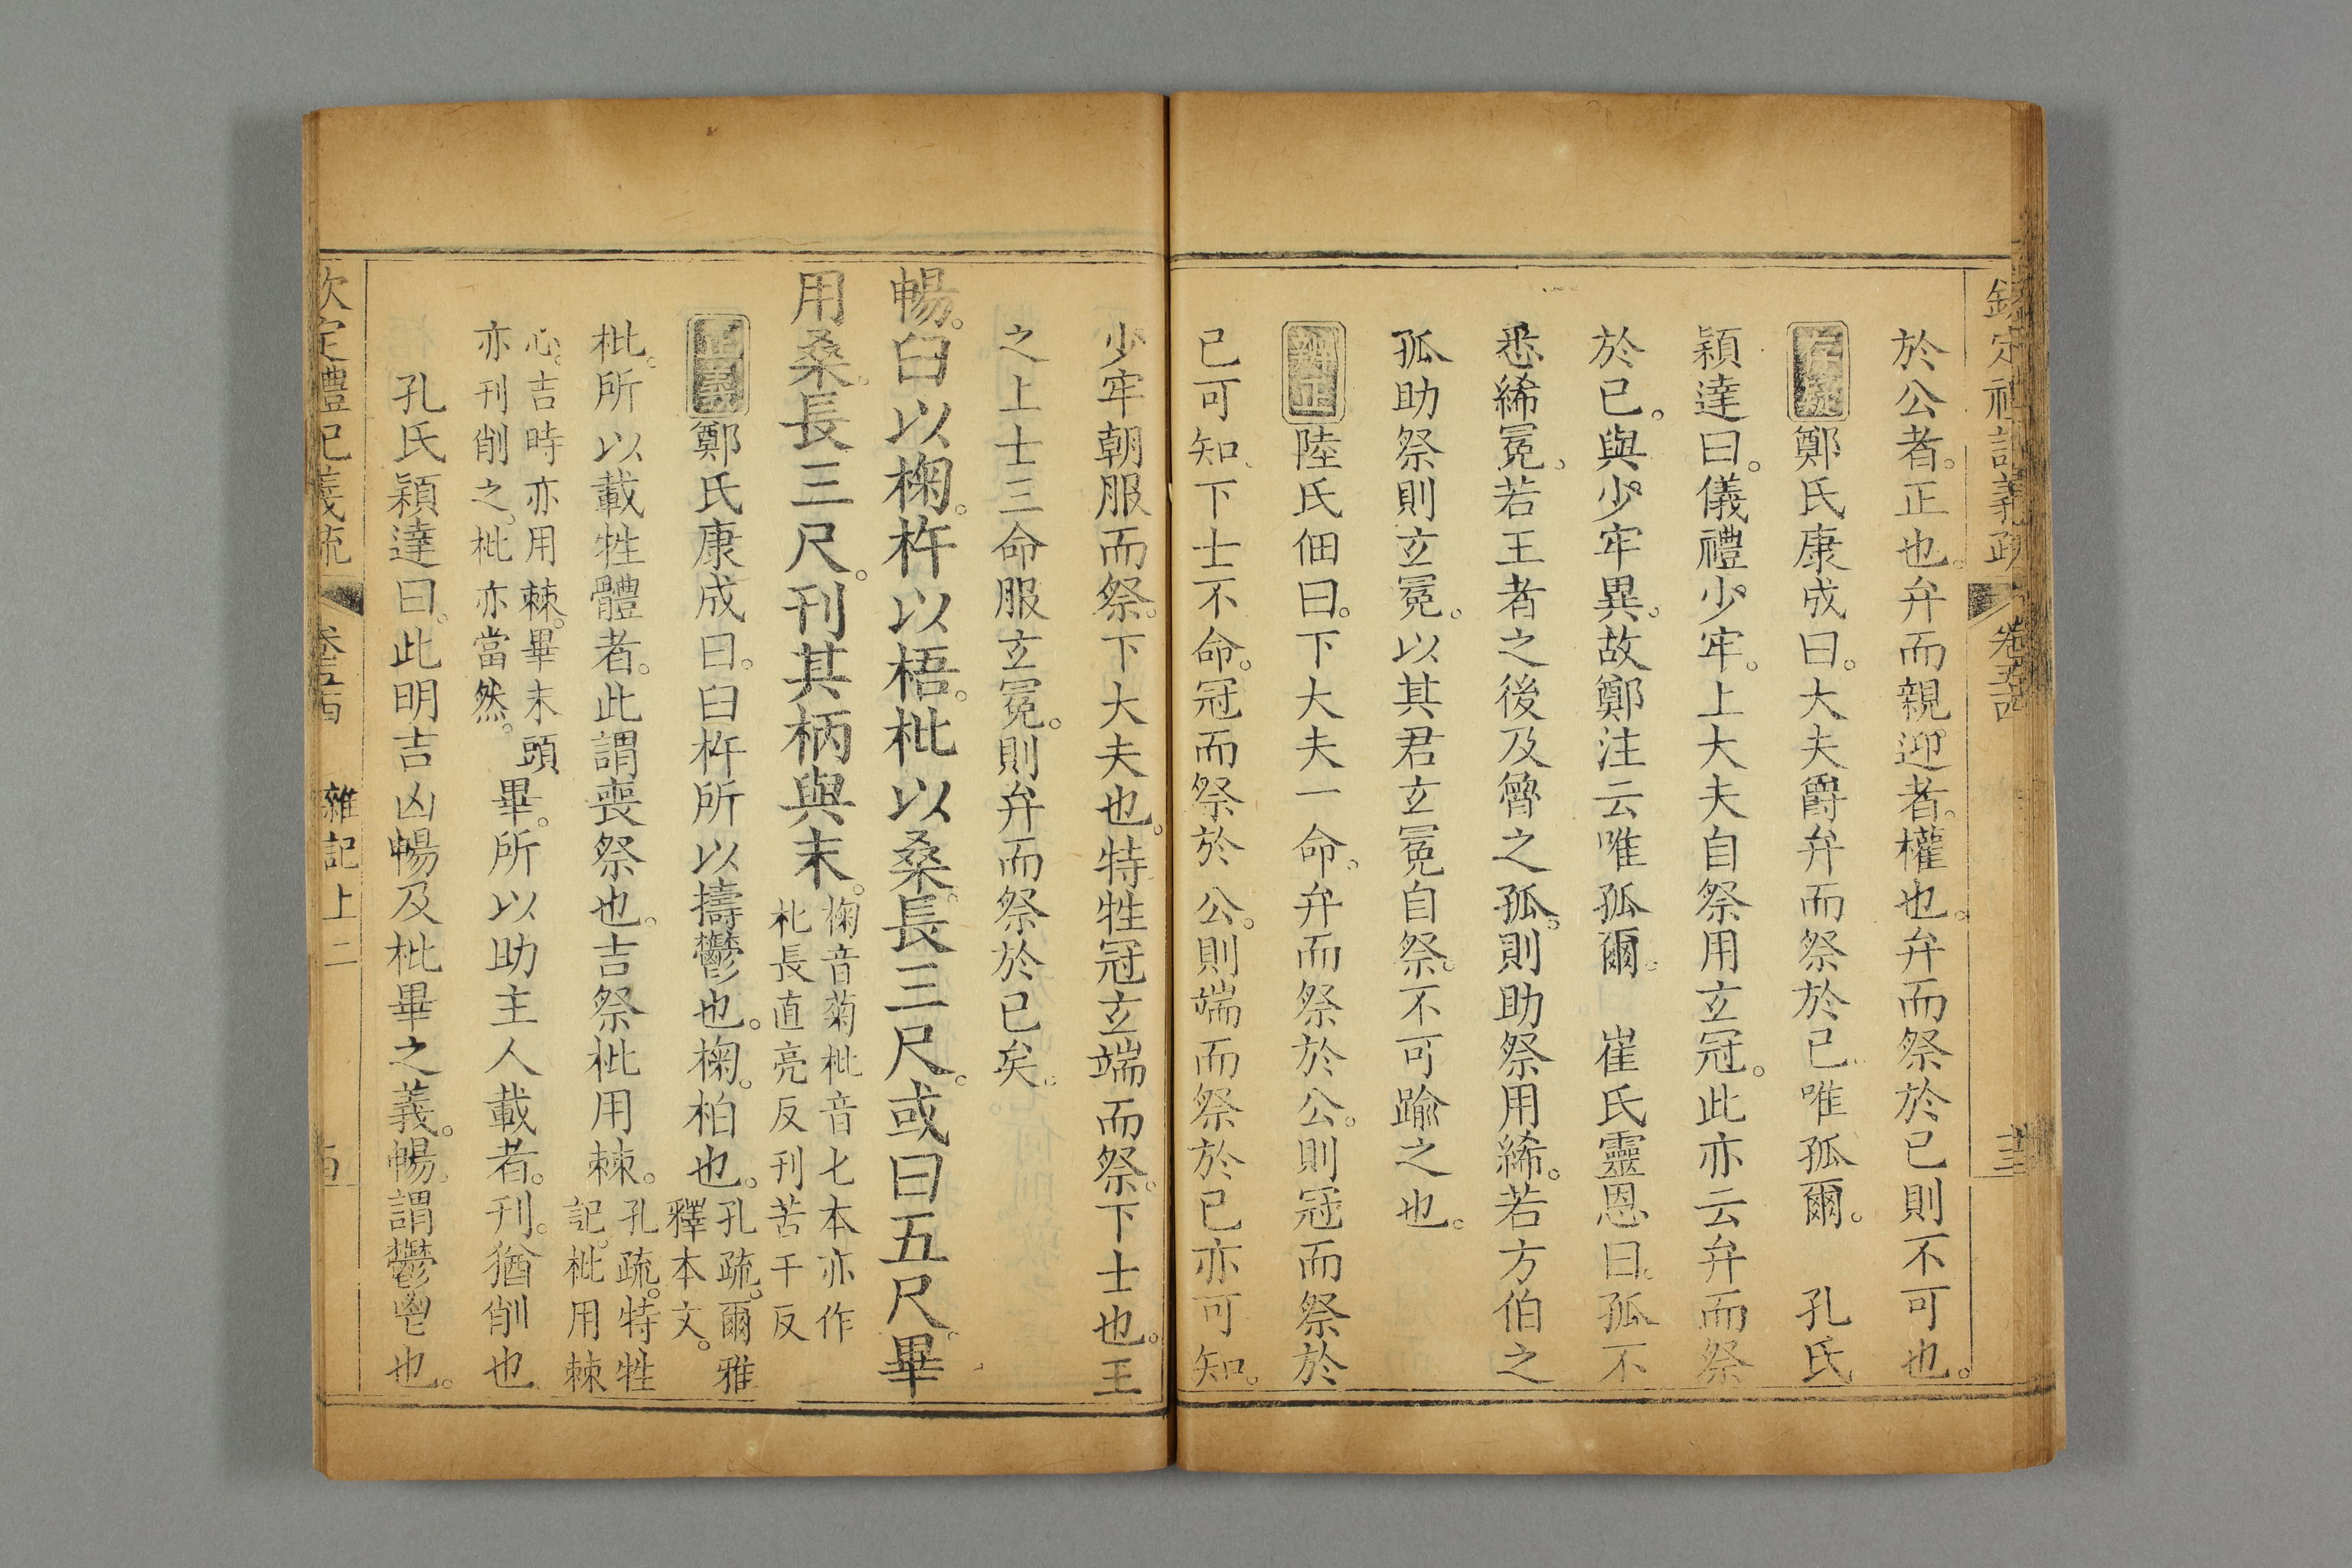 欽定禮記義疏 卷五十四
於公者。正也。弁而親迎者。權也。弁而祭於已則不可也。
存疑 鄭氏康成曰。大夫爵弁而祭於已。唯孤爾。 孔氏
穎達曰。儀禮少牢。上大夫自祭用玄冠。此亦云弁而祭
於已。與少牢異。故鄭注云唯孤爾。 崔氏靈恩曰。孤不
悉絺冕。若王者之後及魯之孤。則助祭用絺。若方伯之
孤助祭則玄冕。以其君玄冕自祭。不可踰之也。
辨正 陸氏佃曰。下大夫一命。弁而祭於公。則冠而祭於
已可知。下士不命。冠而祭於公。則端而祭於已亦可知。
少牢朝服而祭。下大夫也。特牲冠玄端而祭。下士也。王
之上士三命服玄冕。則弁而祭於已矣。
暢。臼以椈。杵以梧。枇以桑。長三尺。或曰五尺。畢
用桑。長三尺。刊其柄與末。椈音菊枇音七本亦作
朼長直亮反刊苦干反
正義 鄭氏康成曰。臼杵所以擣鬱也。椈。柏也。孔疏。爾雅
釋本文。
枇。所以載牲體者。此謂喪祭也。吉祭枇用棘。孔疏。特牲
記。枇用棘
心。吉時亦用棘。畢末頭
亦刊削之。枇亦當然。
畢。所以助主人載者。刊。猶削也
孔氏穎達曰。此明吉凶暢及枇畢之義。暢。謂鬱鬯也。
欽定禮記義疏 卷五十四 雜記上二